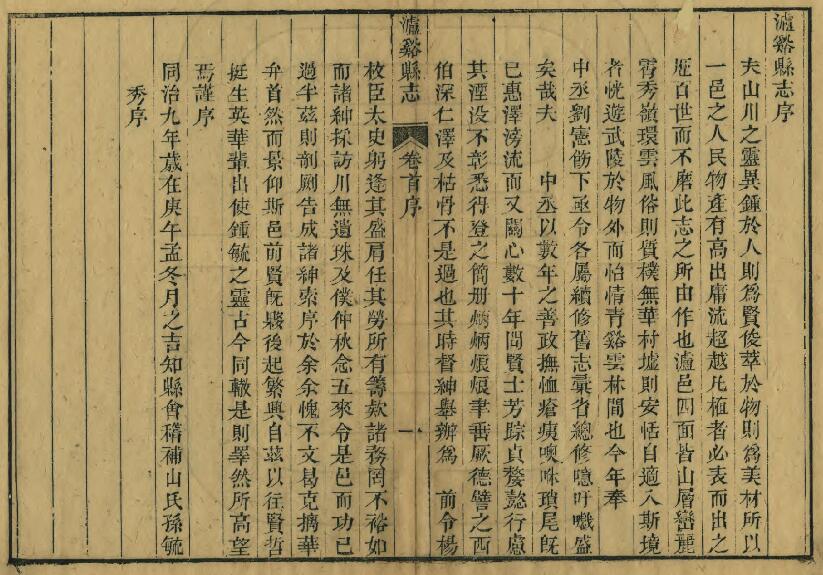 瀘谿縣志序
夫山川之靈異鍾於人則爲賢俊萃於物則爲美材所以
一邑之人民物產有高出庸流超越凡植者必表而出之
歷百世而不磨此志之所由作也瀘邑四面皆山層巒麗
霄秀嶺環雲風俗則質樸無華村墟則安恬自適入斯境
者恍遊武陵於物外而怡情青谿雲林間也今年奉
中丞劉憲飭下亟令各屬續修舊志彙省總修噫吁嚱盛
矣哉夫 中丞以數年之善政撫恤瘡痍噢咻瑣尾旣
已惠澤滂流而又關心數十年間賢士芳踪貞嫠懿行慮
其湮没不彰悉得登之簡册炳炳烺烺聿垂厥德譬之西
伯深仁澤及枯骨不是過也其時督紳舉辦爲 前令楊
瀘谿縣志 卷首序 一
枚臣太史躬逢其盛肩任其勞所有籌款諸務罔不裕如
而諸紳採訪川無遺珠及僕仲秋念五來令是邑而功已
過半茲則剞劂告成諸紳索序於余余愧不文曷克摛華
弁首然而景仰斯邑前賢旣踐後起繁興自茲以往賢哲
挺生英華輩出使鍾毓之靈古今同轍是則睪然所高望
焉謹序
同治九年歲在庚午孟冬月之吉知縣會稽補山氏孫毓
秀序